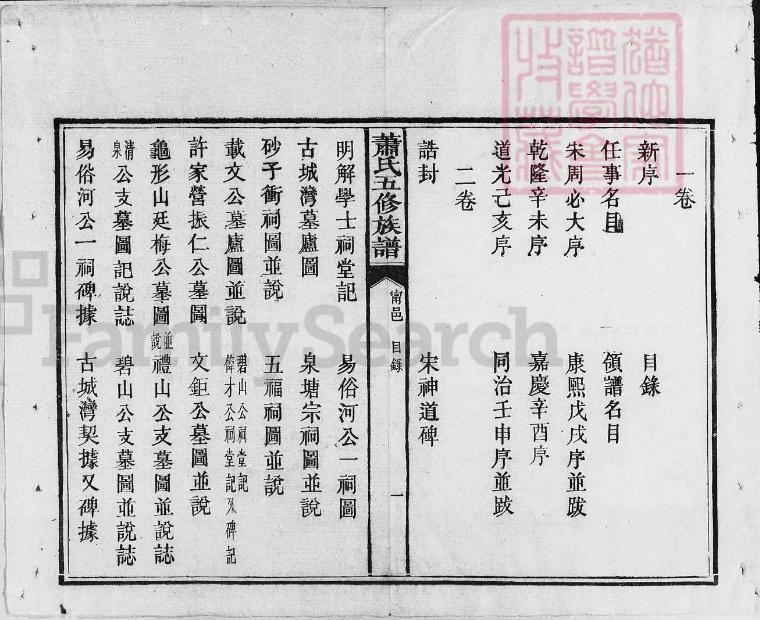 一卷
新序 目錄
任事名目 領譜名目
宋周必大序 康熙戊戌序並跋
乾隆辛未序 嘉慶辛酉序
道光己亥序 同治壬申序並跋
二卷
誥封 宋神道碑
蕭氏五修族譜 甯邑 目錄 一
明解學士祠堂記 易俗河公一祠圖
古城灣墓廬圖 泉塘宗祠圖並說
砂子衝祠圖並說 五福祠圖並說
載文公墓廬圖並說 碧山公祠堂記 偉才公祠堂記及碑記
許家營振仁公墓圖 文鉅公墓圖並說
龜形山廷梅公墓圖並說 禮山公支墓圖並說誌
清泉公支墓圖記說誌 碧山公支墓圖並說誌
易俗河公一祠碑據 古城灣契據又碑據
FamilySearch